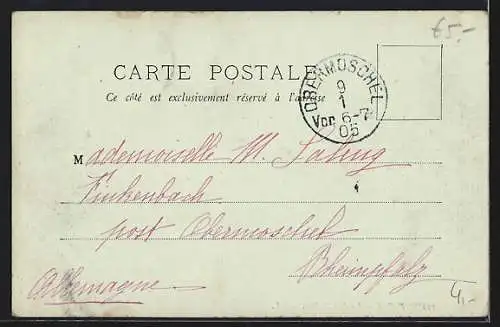 65.-
CARTE POSTALE
Ce côté est exclusivement réservé à l'adresse
OBERMOSCHEL
9
1
Vor 6-7
05
Mademoiselle M. Saling
Finkenbach
post Obermoschel
Rheinpfalz
Allemagne
4,-